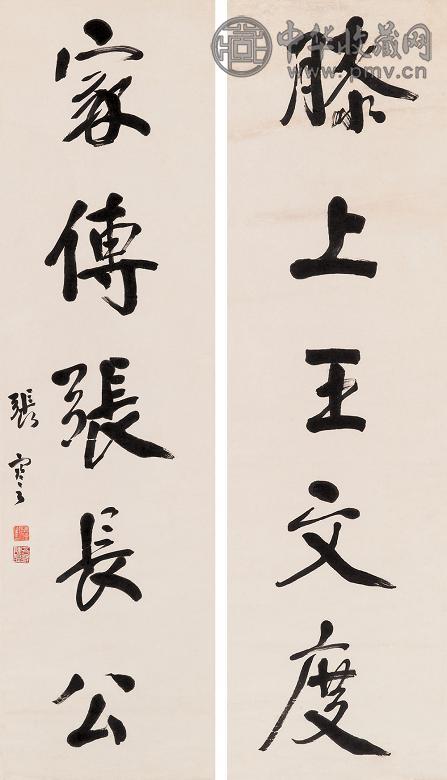 中华收藏网
www.pmv.cn
膝上王文度
家傳張長公
張謇